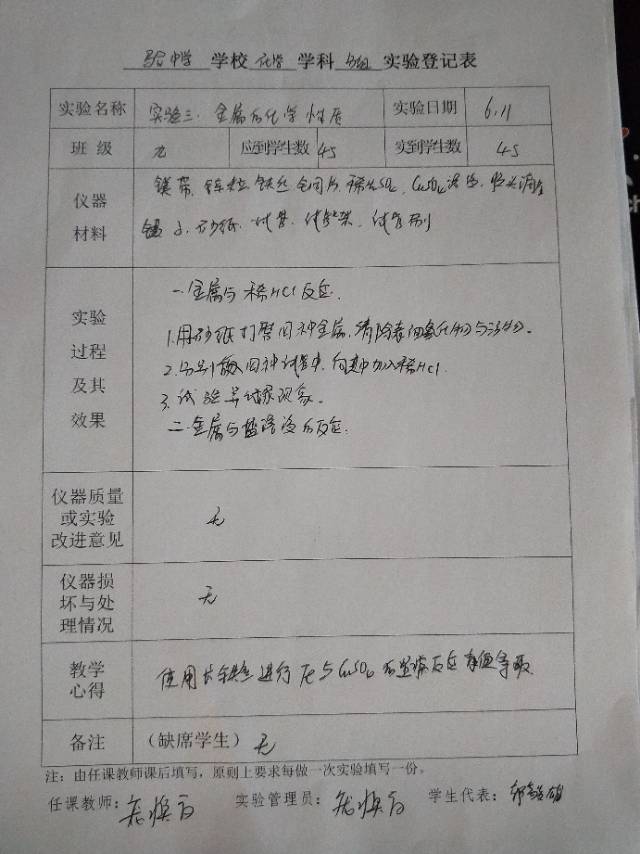 学校 化学 学科 分组 实验登记表
实验名称 实验三、金属的化学性质 实验日期 6.11
班 级 九 应到学生数 45 实到学生数 45
仪器材料 镁带、锌粒、铁丝、铜片、稀H₂SO₄、CuSO₄溶液、
砂纸、试管、试管架、试管刷
实验过程及其效果
一、金属与稀HCl反应.
1.用砂纸打磨四种金属,清除表面氧化物与污物。
2.分别放入四种试管中,向其中加入稀HCl.
3.试验并观察现象。
二、金属与盐溶液的反应.
仪器质量或实验改进意见 无
仪器损坏与处理情况 无
教学心得 使用长铁丝进行Fe与CuSO₄的置换反应
备注 (缺席学生) 无
注:由任课教师课后填写,原则上要求每做一次实验填写一份。
任课教师: 实验管理员: 学生代表: